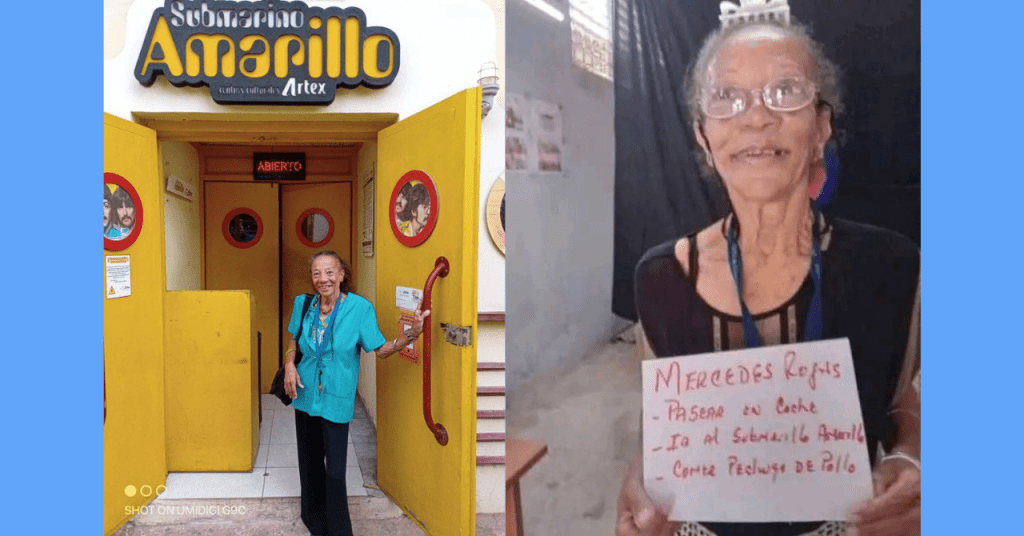 Submarino
Amarillo
centros culturales Artex
ABIERTO
SHOT ON UMIDIGI G9C
MERCEDES Rojas
- PASEAR EN Coche
- IR Al Submarillo Amarillo
- Comer Pechuga DE Pollo